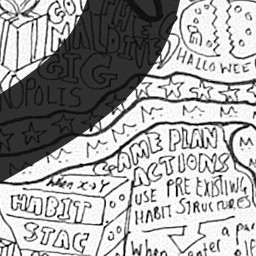 CO
THE
MALDIVES
GIG
OPOLIS
HALLOWEE
GAME PLAN
ACTIONS
USE PRE EXISTING
HABIT STRUCTURES
When X→Y
HABIT
STAC
When enter a par